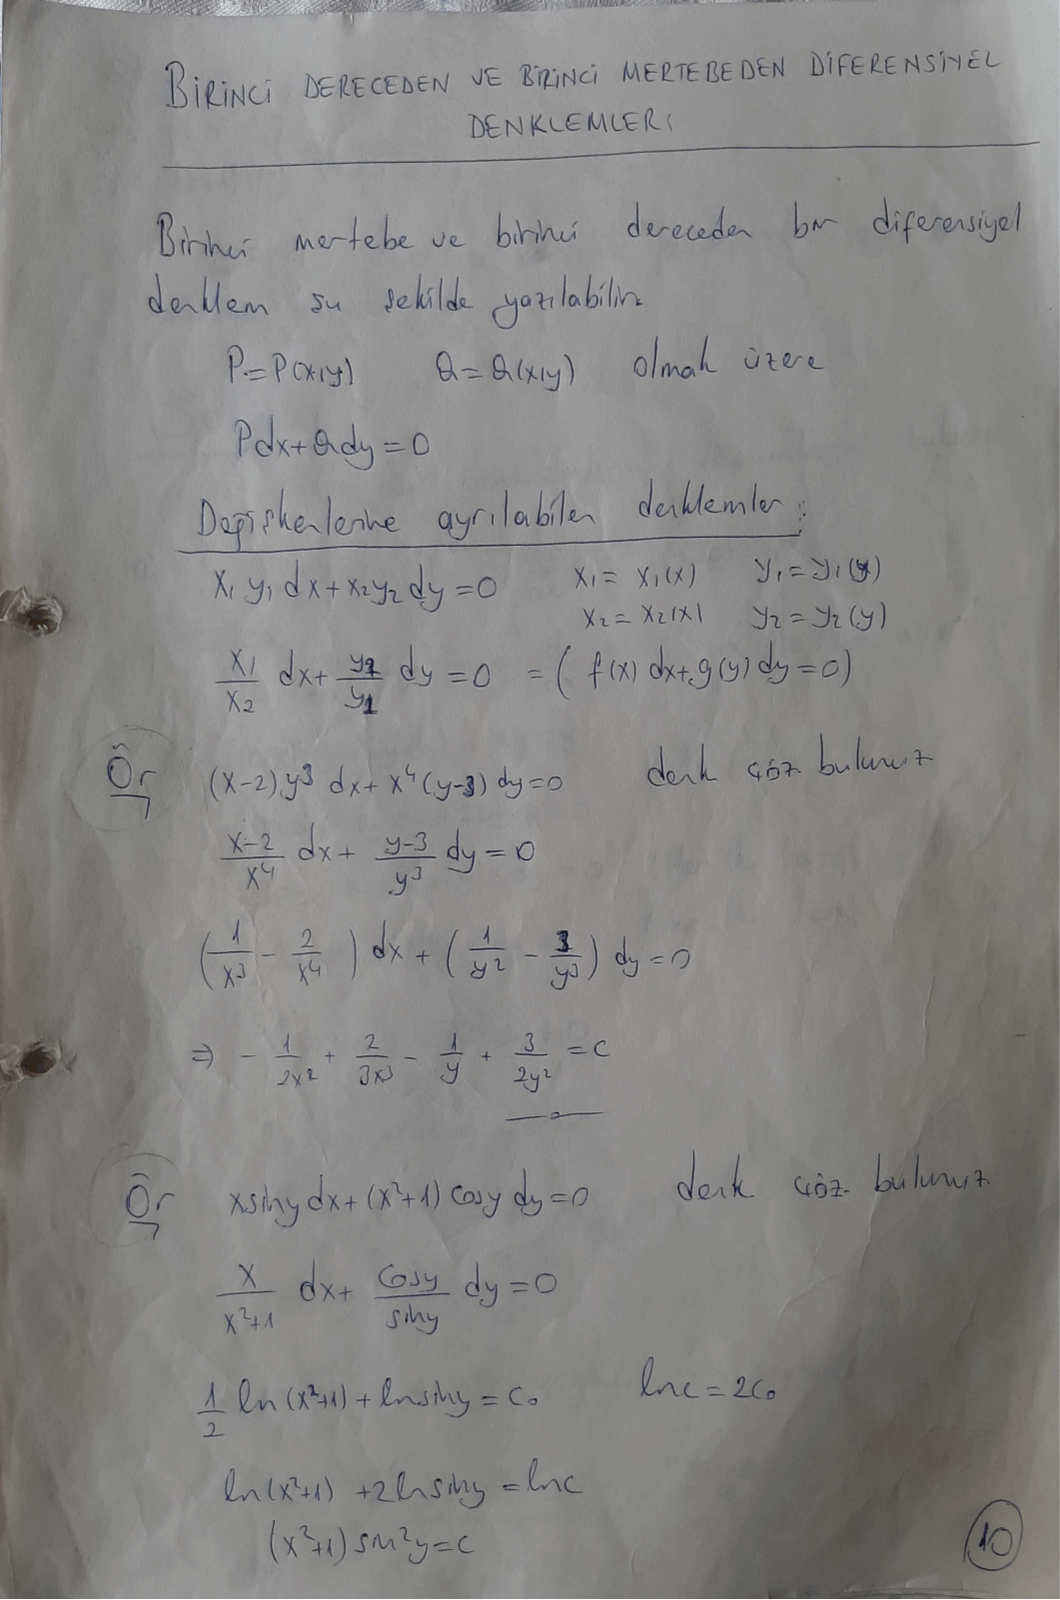 BİRİNCİ DERECEDEN VE BİRİNCİ MERTEBEDEN DİFERENSİYEL
DENKLEMLERİ
Birinci mertebe ve birinci dereceden bir diferensiyel
denklem şu şekilde yazılabilir.
P=P(x,y) Q=Q(x,y) olmak üzere
Pdx+Qdy=0
Değişkenlerine ayrılabilen denklemler:
x₁ y₁ dx + x₂y₂ dy = 0 x₁ = x₁(x) y₁ = y₁(y)
x₂ = x₂(x) y₂ = y₂(y)
x₁/x₂ dx + y₂/y₁ dy = 0 = ( f(x) dx+g(y) dy = 0)
Ör (x-2)y³ dx + x⁴(y-3) dy=0 denk çöz bulunuz
x-2/x⁴ dx + y-3/y³ dy = 0
(1/x³ - 2/x⁴) dx + (1/y² - 3/y³) dy = 0
⇒ - 1/2x² + 2/3x³ - 1/y + 3/2y² = c
Ör xsiny dx + (x²+1) cosy dy = 0 denk çöz. bulunuz.
x/x²+1 dx + cosy/siny dy = 0
1/2 ln(x²+1) + lnsiny = c₀ lnc = 2c₀
ln(x²+1) + 2lnsiny = lnc
(x²+1) sin²y = c
10